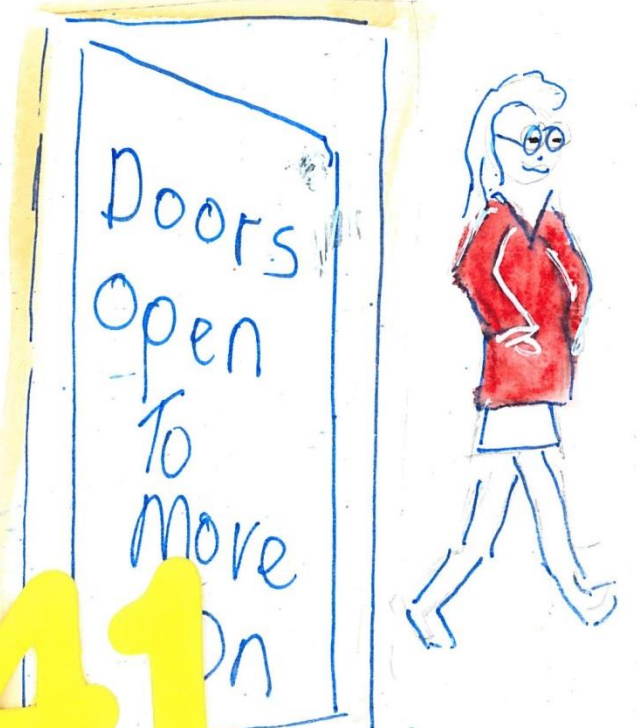 Doors
Open
To
Move
On
41